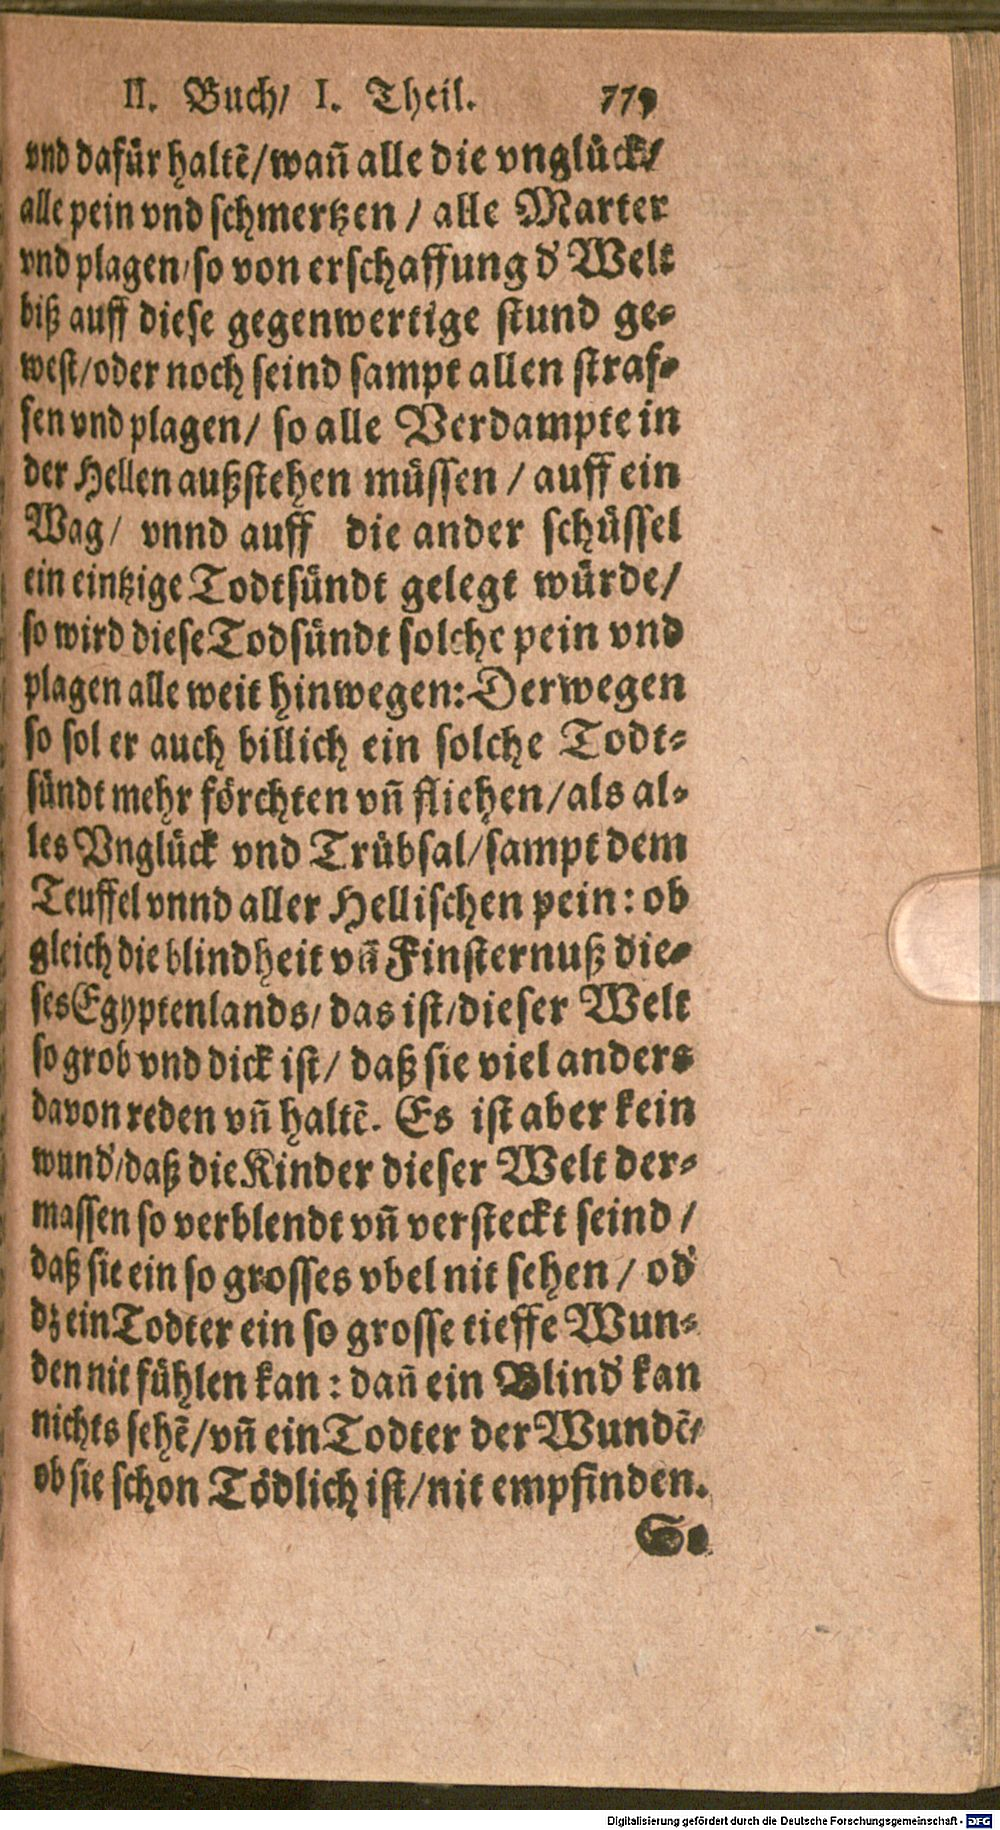 II. Buch/ I. Theil. 779
vnd dafür haltẽ/wañ alle die vnglück/
alle pein vnd schmertzen / alle Marter
vnd plagen/so von erschaffung d' Welt
biß auff diese gegenwertige stund ge-
west/oder noch seind sampt allen straf-
fen vnd plagen/ so alle Verdampte in
der Hellen außstehen müssen / auff ein
Wag/ vnnd auff die ander schüssel
ein eintzige Todtsündt gelegt würde/
so wird diese Todsündt solche pein vnd
plagen alle weit hinwegen: Derwegen
so sol er auch billich ein solche Todt-
sündt mehr förchten vñ fliehen/als al-
les Vnglück vnd Trübsal/sampt dem
Teuffel vnnd aller Hellischen pein: ob
gleich die blindheit vñ Finsternuß die-
ses Egyptenlands/ das ist/dieser Welt
so grob vnd dick ist/ daß sie viel anders
davon reden vñ haltẽ. Es ist aber kein
wund'/daß die Kinder dieser Welt der-
massen so verblendt vñ versteckt seind /
daß sie ein so grosses vbel nit sehen / od'
dz ein Todter ein so grosse tieffe Wun-
den nit fühlen kan : dañ ein Blind' kan
nichts sehẽ/vñ ein Todter der Wundẽ/
ob sie schon Tödlich ist/nit empfinden.
So
Digitalisierung gefördert durch die Deutsche Forschungsgemeinschaft - DFG